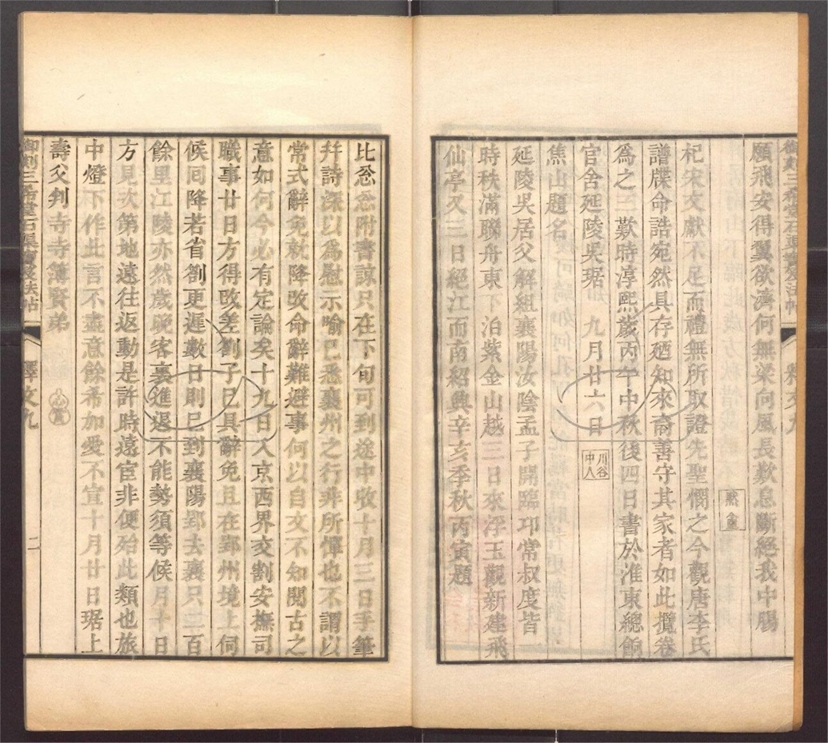 願飛安得翼欲濟何無梁向風長歎息斷絕我中腸
杞宋文獻不足而禮無所取證先聖憫之今觀唐李氏
譜牒命誥宛然具存廼知來裔善守其家者如此攬卷
爲之三歎時淳熙歲丙午中秋後四日書於淮東總餉
官舍延陵吳琚 九月廿六日
川谷
中人
焦山題名
延陵吳居父解組襄陽汝陰孟子開臨邛常叔度皆
時秩滿聯舟東下泊紫金山越三日來浮玉觀新建飛
仙亭又三日絕江而南紹熙辛亥季秋丙寅題
比忩忩附書諒只在下旬可到途中收十月三日手筆
幷詩深以爲慰示喻已悉襄州之行非所憚也不謂以
常式辭免就降改命辭難避事何以自文不知閱古之
意如何今必有定論矣十九日入京西界交割安撫司
職事廿日方得改差劄子已具辭免且在郢州境上伺
候回降若省劄更遲數日則已到襄陽郢去襄只三百
餘里江陵亦然歲晚客裏進退不能勢須等候 月十日
方見次第地遠往返動是許時遠宦非便殆此類也旅
中燈下作此言不盡意餘希加愛不宣十月廿日琚上
壽父判寺寺簿賢弟
御刻三希堂石渠寶笈法帖
釋文九
二